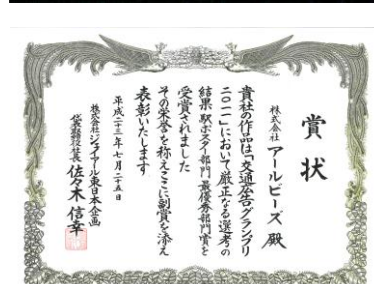 賞状
株式会社 アールビーズ 殿
貴社の作品は「交通広告グランプリ
二〇一一」において厳正なる選考の
結果駅ポスター部門最優秀部門賞を
受賞されました
その栄誉を称えここに副賞を添え
表彰いたします
平成二十三年七月二十五日
株式会社ジェイアール東日本企画
代表取締役社長 佐々木 信幸